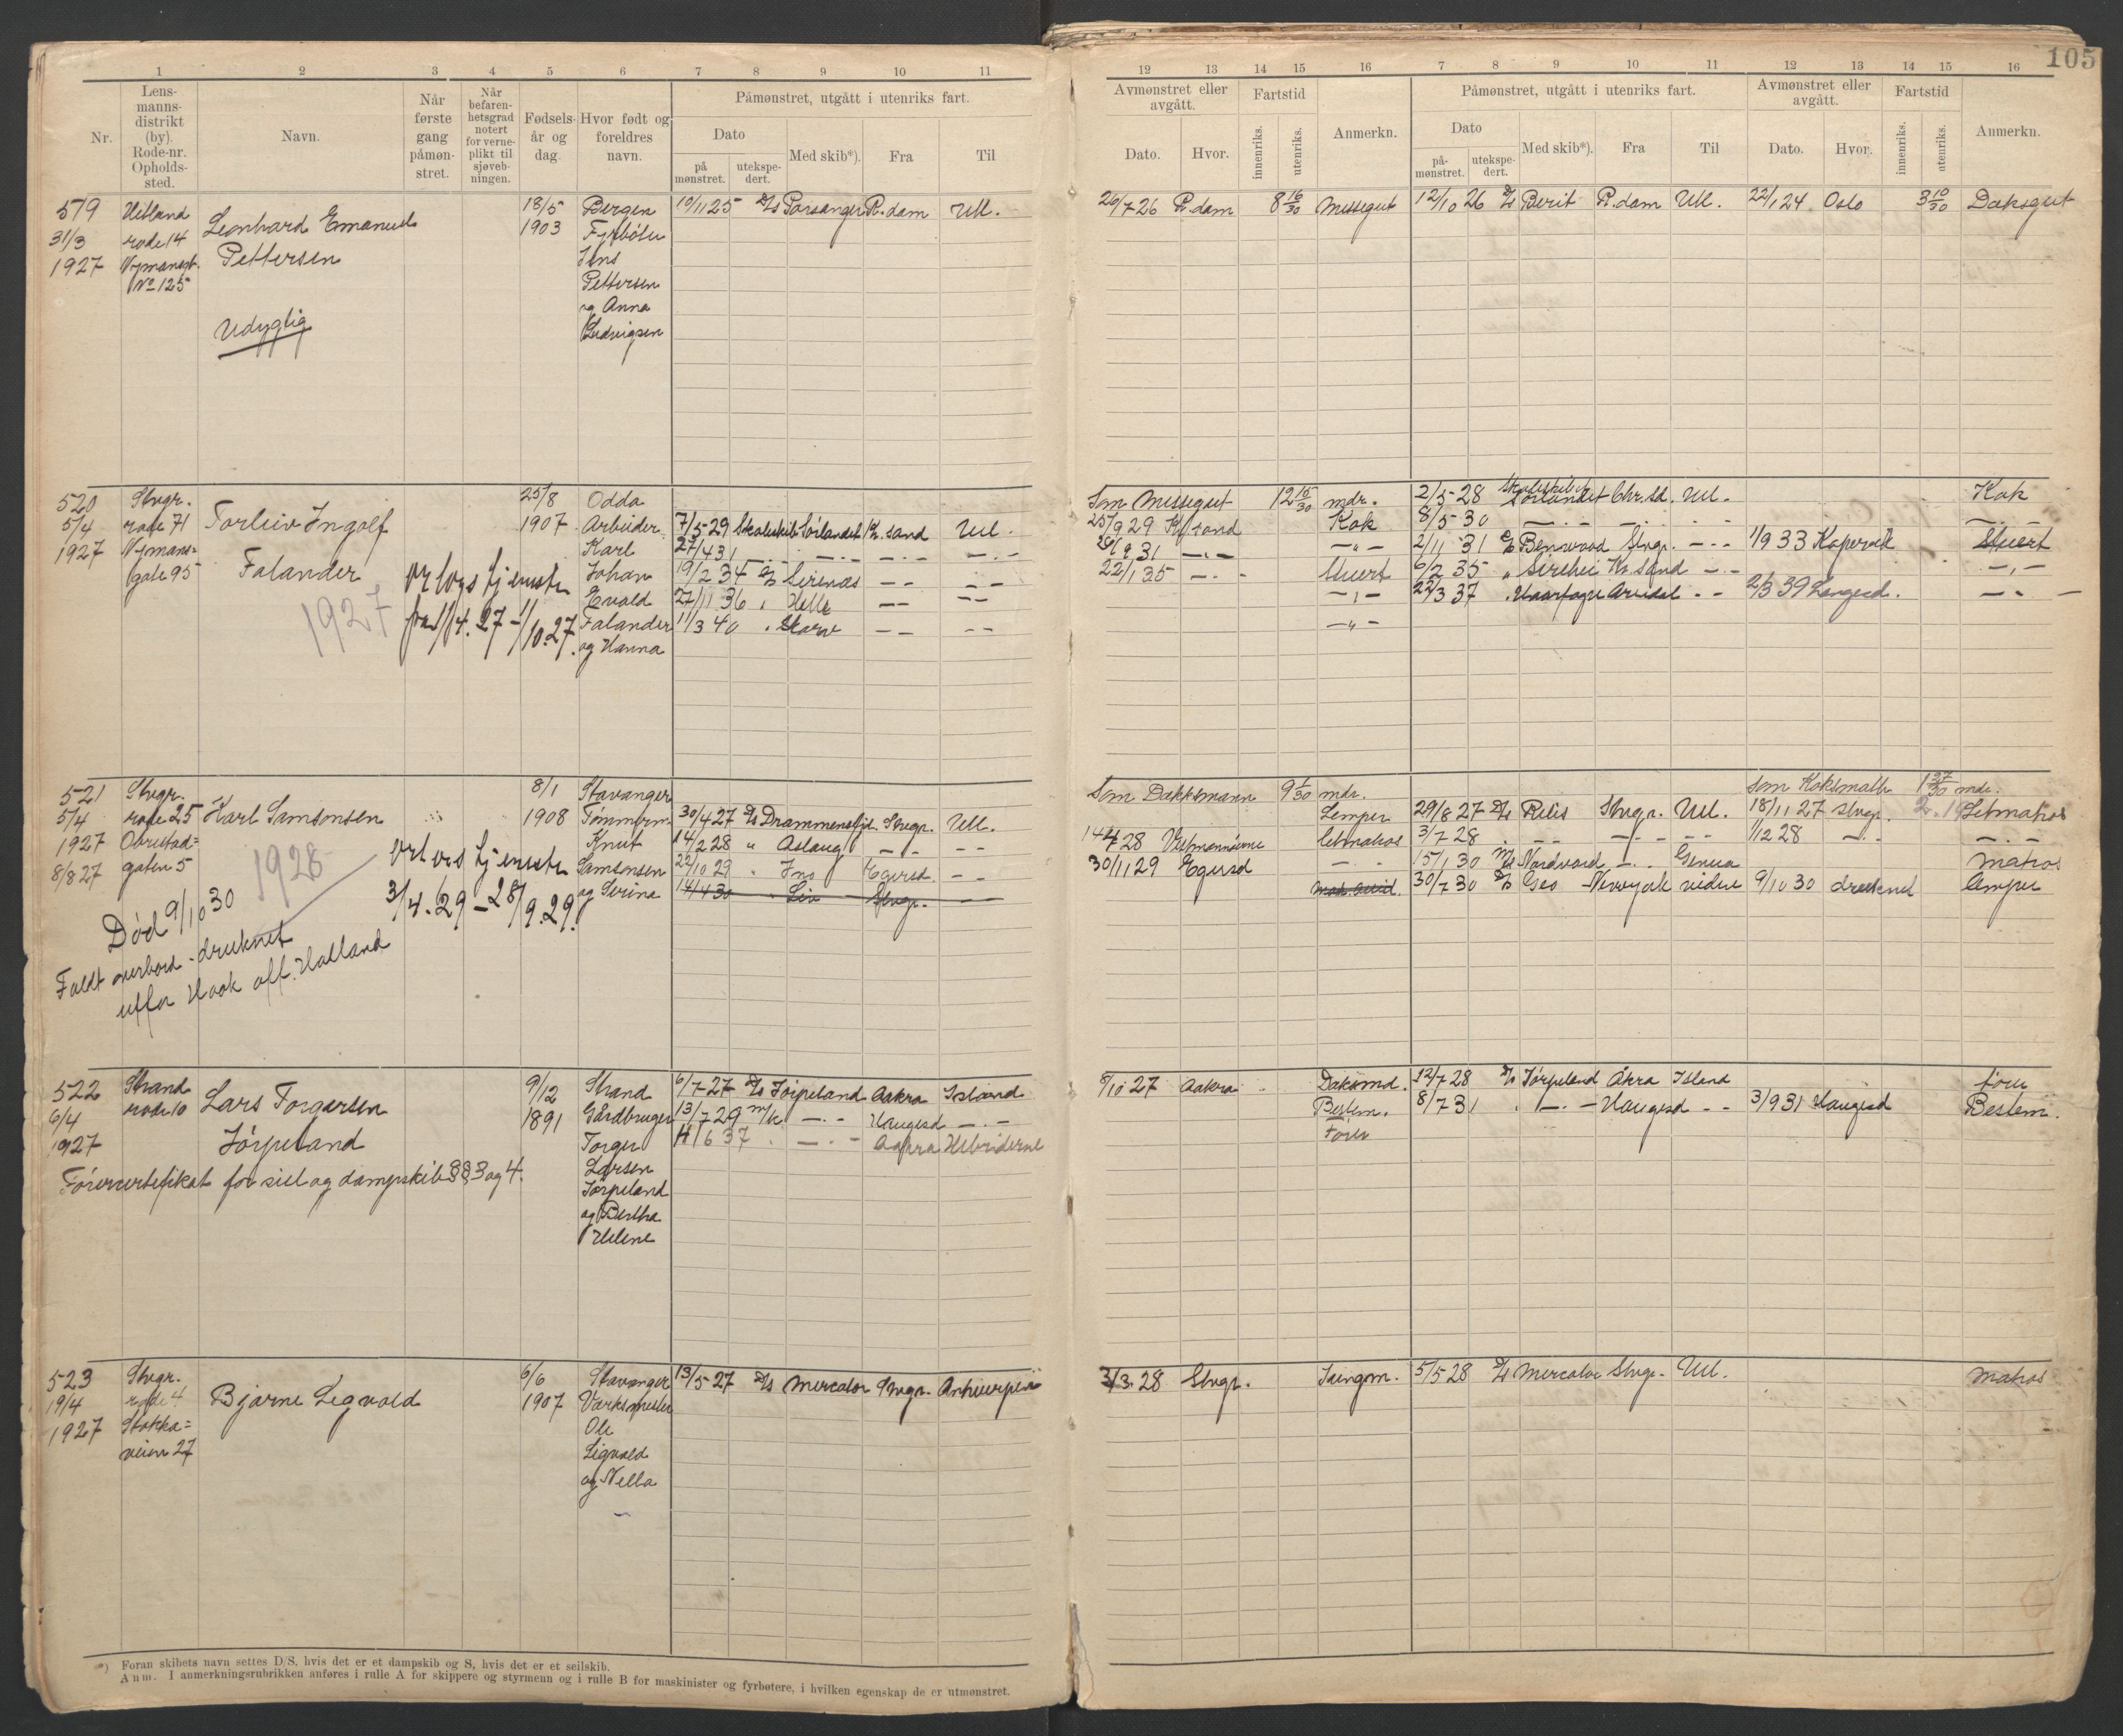 105
1 2 3 4 5 6 7 8 9 10 11
12 13 14 15 16 7 8 9 10 11 12 13 14 15 16
Nr.
Lens-
manns-
distrikt
(by).
Rode-nr.
Opholds-
sted.
Navn.
Når
første
gang
påmøn-
stret.
Når
befaren-
hetsgrad
notert
for verne-
plikt til
sjøveb-
ningen.
Fødsels-
år og
dag.
Hvor født og
foreldres
navn.
Påmønstret, utgått i utenriks fart.
Dato
på
mønstret.
utekspe-
dert.
Med skib*).
Fra
Til
Avmønstret eller
avgått.
Dato.
Hvor.
Fartstid
innenriks.
utenriks.
Anmerkn.
Påmønstret, utgått i utenriks fart.
Dato
på-
mønstret.
utekspe-
dert.
Med skib*).
Fra
Til
Avmønstret eller
avgått.
Dato.
Hvor.
Fartstid
innenriks.
utenriks.
Anmerkn.
519
31/3
1927
Hetland
rode 14
Nymansgt.
No 125
Leonhard Emanuel
Pettersen
Udygtig
18/5
1903
Bergen
Fyrbøter
Jens
Pettersen
og Anna
Ludvigsen
10/11 25 D/s Porsanger R.dam Utl.
26/7-26 R.dam 8 16/30 Messegut 12/10 26 D/s Berit R.dam Utl. 22/1 27 Oslo 3 10/30 Daksgut
520
5/4
1927
Stvgr.
rode 71
Nymans=
gate 95
Torleiv Ingolf
Falander
1927
Orlogstjeneste
fra 1/4.27 - 1/10.27.
25/8
1907
Odda
Arbeider
Karl
Johan
Evald
Falander
og Hanna
7/5-29 Skoleskib Sørlandet K. sand Utl.
27/4 31 — " — — . — — . —
19/2 34 D/s Sirenes — — — —
27/11 36 " Helle — — — —
11/3 40 " Skarv — — — —
Som Messegut 12 15/30 mdr. 2/5-28 Skoleskibet Sørlandet Chr.sd. Utl. Kok
25/9 29 K.sand Kok 8/5-30
26/9 31 — " — — " — 2/11 31 D/s Benwood Stvgr. — . — 1/9 33 Kopervik Stuert
22/1 35 — . — Stuert 6/2 35 " Sirehei Kr. sand — . — — " —
— " — 22/3 37 " Haarfagre Arendal — . — 2/3 39 Langesd. — " —
— " —
521
5/4
1927
8/8 27
Stvgr.
rode 25
Obrestad=
gaten 5
Karl Samsonsen
1928
Orlogstjeneste
3/4.29 - 28/9.29.
Død 9/10 30
Faldt overbord - druknet
utfor Hook off. Holland
8/1
1908
Stavanger
Tømmerm.
Knut
Samsonsen
og Serina
30/4 27 D/s Drammensfjd. Stvgr. Utl.
14/2 28 " Aslaug — . — — —
22/10 29 " Ino Egersd. — —
14/4 30 " Liv Stvgr. —
Som Dækksmann 9 1/30 mdr. Som Koksmath 1 27/30 mdr.
Lemper 29/8 27 D/s Rilis Stvgr. Utl. 18/11 27 Stvgr. Letmatros
14/4 28 Vestmannøerne letmatros 3/7-28 — . — — — 1/12 28 — . — — . —
30/11 29 Egersd — . — 15/1 30 M/s Nordvard — . — Genua Matros
30/7 30 D/s Geo Newyork videre 9/10 30 druknet Lemper
522
6/4
1927
Strand
rode 10
Lars Torgersen
Jørpeland
Førercertefikat for seil og dampskib §§ 3 og 4.
9/12
1891
Strand
Gårdbruger
Torger
Larsen
Jørpeland
og Bertha
Helene
6/7-27 D/s Jørpeland Aakra Island
13/7 29 M/k — . — Haugesd — . —
11/6 37 " — . — Aakra Hebriderne
8/10 27 Aakra Daksmd. 12/7-28 D/s Jørpeland Åkra Island fører
Bestem. 8/7 31 " — . — Haugesd — — 3/9 31 Haugesd Bestem.
Fører
523
19/4
1927
Stvgr.
rode 4
Stokka=
veien 27
Bjarne Sigvald
6/6
1907
Stavanger
Værksmester
Ole
Sigvald
og Nella
13/5-27 D/s Mercator Stvgr. Antwerpen
3/3.28 Stvgr. Jungm. 5/5 28 D/s Mercator Stvgr. Utl. Matros
*) Foran skibets navn settes D/S, hvis det er et dampskib og S, hvis det er et seilskib.
Anm. I anmerkningsrubrikken anføres i rulle A for skippere og styrmenn og i rulle B for maskinister og fyrbøtere, i hvilken egenskap de er utmønstret.